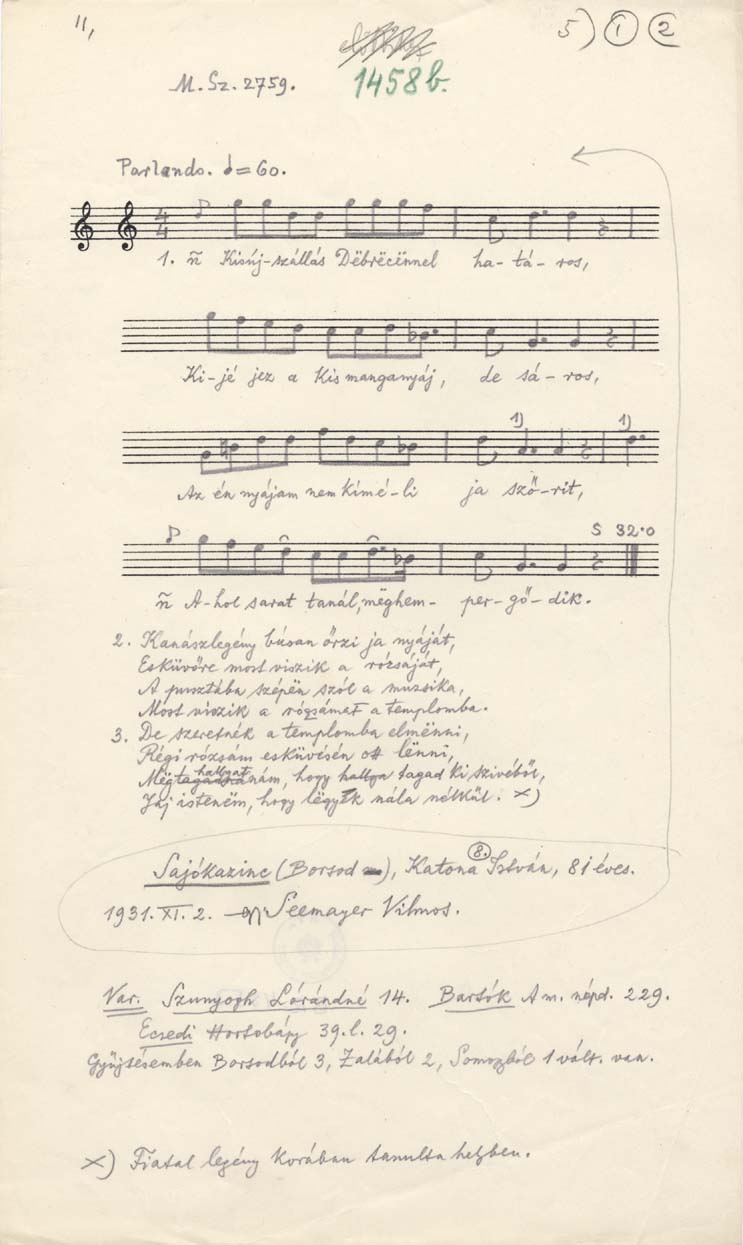 11,
5) 1 2
M. Sz. 2759.
1458 b.
Parlando. ♩=60.
4
4
1. n̄ Kisúj-szállás Dëbrëcënnel ha-tá-ros,
Ki-jé jez a kis manganyáj, de sá-ros,
1) 1)
Az én nyájam nem kímé-li ja sző-rit,
S 32.0
n̄ A-hol sarat tanál, mëghem- per-gő-dik.
2. Kanászlegény búsan őrzi ja nyáját,
Esküvőre most viszik a rózsáját,
A pusztába szépën szól a muzsika,
Most viszik a rózsámat a templomba.
3. De szeretnék a templomba elmënni,
Régi rózsám esküvésén ott lënni,
hallgat
Mëg nám, hogy hallga tagad ki szivéből,
Jaj istenëm, hogy lëgyek nála nélkül. x)
8.
Sajókazinc (Borsod), Katona István, 81 éves.
1931. XI. 2. Seemayer Vilmos.
Var. Szunyogh Lórándné 14. Bartók A m. népd. 229.
Ecsedi Hortobágy 39. l. 29.
Gyüjtésemben Borsodból 3, Zalából 2, Somogyból 1 vált. van.
x) Fiatal legény korában tanulta helyben.